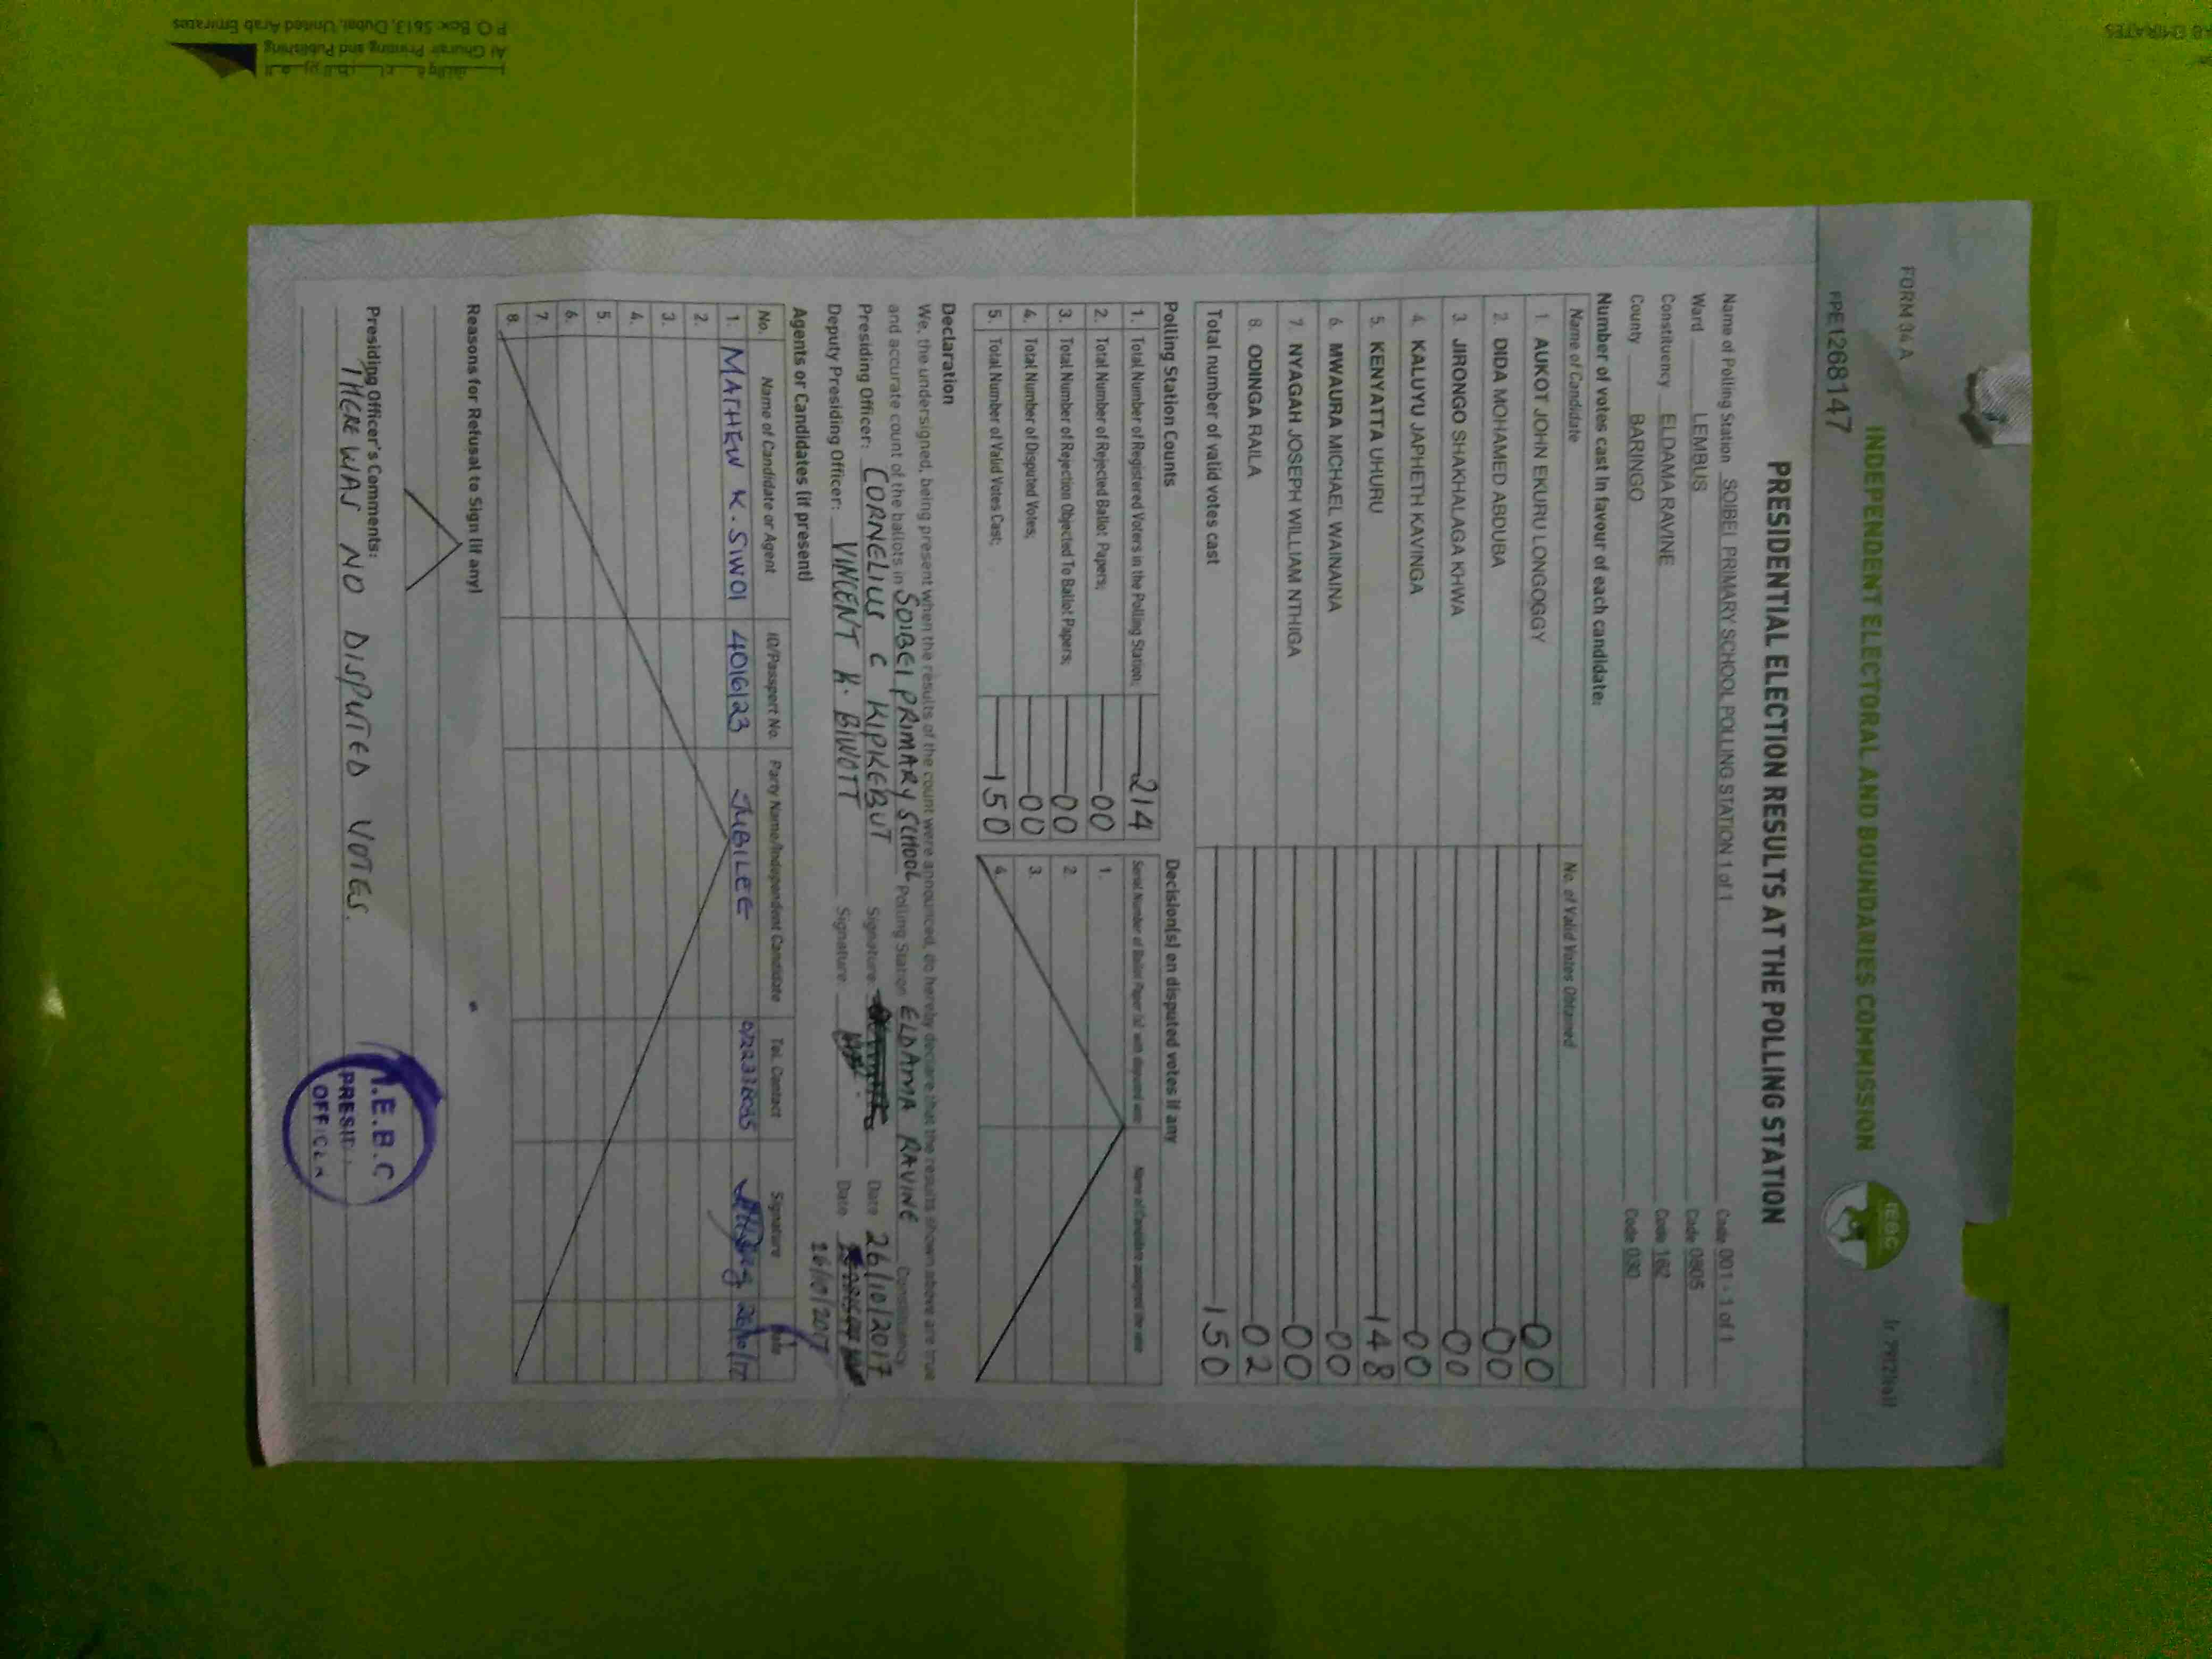 FORM 34 A
INDEPENDENT ELECTORAL AND BOUNDARIES COMMISSION
IEBC
PPE1268147
PRESIDENTIAL ELECTION RESULTS AT THE POLLING STATION
Name of Polling Station SOIBEI PRIMARY SCHOOL POLLING STATION 1 of 1 Code 001 - 1 of 1
Ward LEMBUS Code 0805
Constituency ELDAMA RAVINE Code 162
County BARINGO Code 030
Number of votes cast in favour of each candidate:
Name of Candidate No. of Valid Votes Obtained
1. AUKOT JOHN EKURU LONGOGGY 00
2. DIDA MOHAMED ABDUBA 00
3. JIRONGO SHAKHALAGA KHWA 00
4. KALUYU JAPHETH KAVINGA 00
5. KENYATTA UHURU 148
6. MWAURA MICHAEL WAINAINA 00
7. NYAGAH JOSEPH WILLIAM NTHIGA 00
8. ODINGA RAILA 02
Total number of valid votes cast 150
Polling Station Counts Decision(s) on disputed votes if any
1. Total Number of Registered Voters in the Polling Station; 214
2. Total Number of Rejected Ballot Papers; 00 1.
3. Total Number of Rejection Objected To Ballot Papers; 00 2.
4. Total Number of Disputed Votes; 00 3.
5. Total Number of Valid Votes Cast; 150 4.
Declaration
We, the undersigned, being present when the results of the count were announced, do hereby declare that the results shown above are true
and accurate count of the ballots in SOIBEI PRIMARY SCHOOL Polling Station ELDAMA RAVINE Constituency
Presiding Officer: CORNELIUS C KIPKEBUT Signature Date 26/10/2017
Deputy Presiding Officer: VINCENT K. BIWOTT Signature Date
26/10/2017
Agents or Candidates (if present)
No. Name of Candidate or Agent ID/Passport No. Party Name/Independent Candidate Tel. Contact Signature Date
1. MATHEW K. SIWOI 4016123 JUBILEE 26/10/17
2.
3.
4.
5.
6.
7.
8.
Reasons for Refusal to Sign (if any)
Presiding Officer's Comments:
THERE WAS NO DISPUTED VOTES.
I.E.B.C
Al Ghurair Printing and Publishing
P.O. Box: 5613, Dubai, United Arab Emirates
EMIRATES